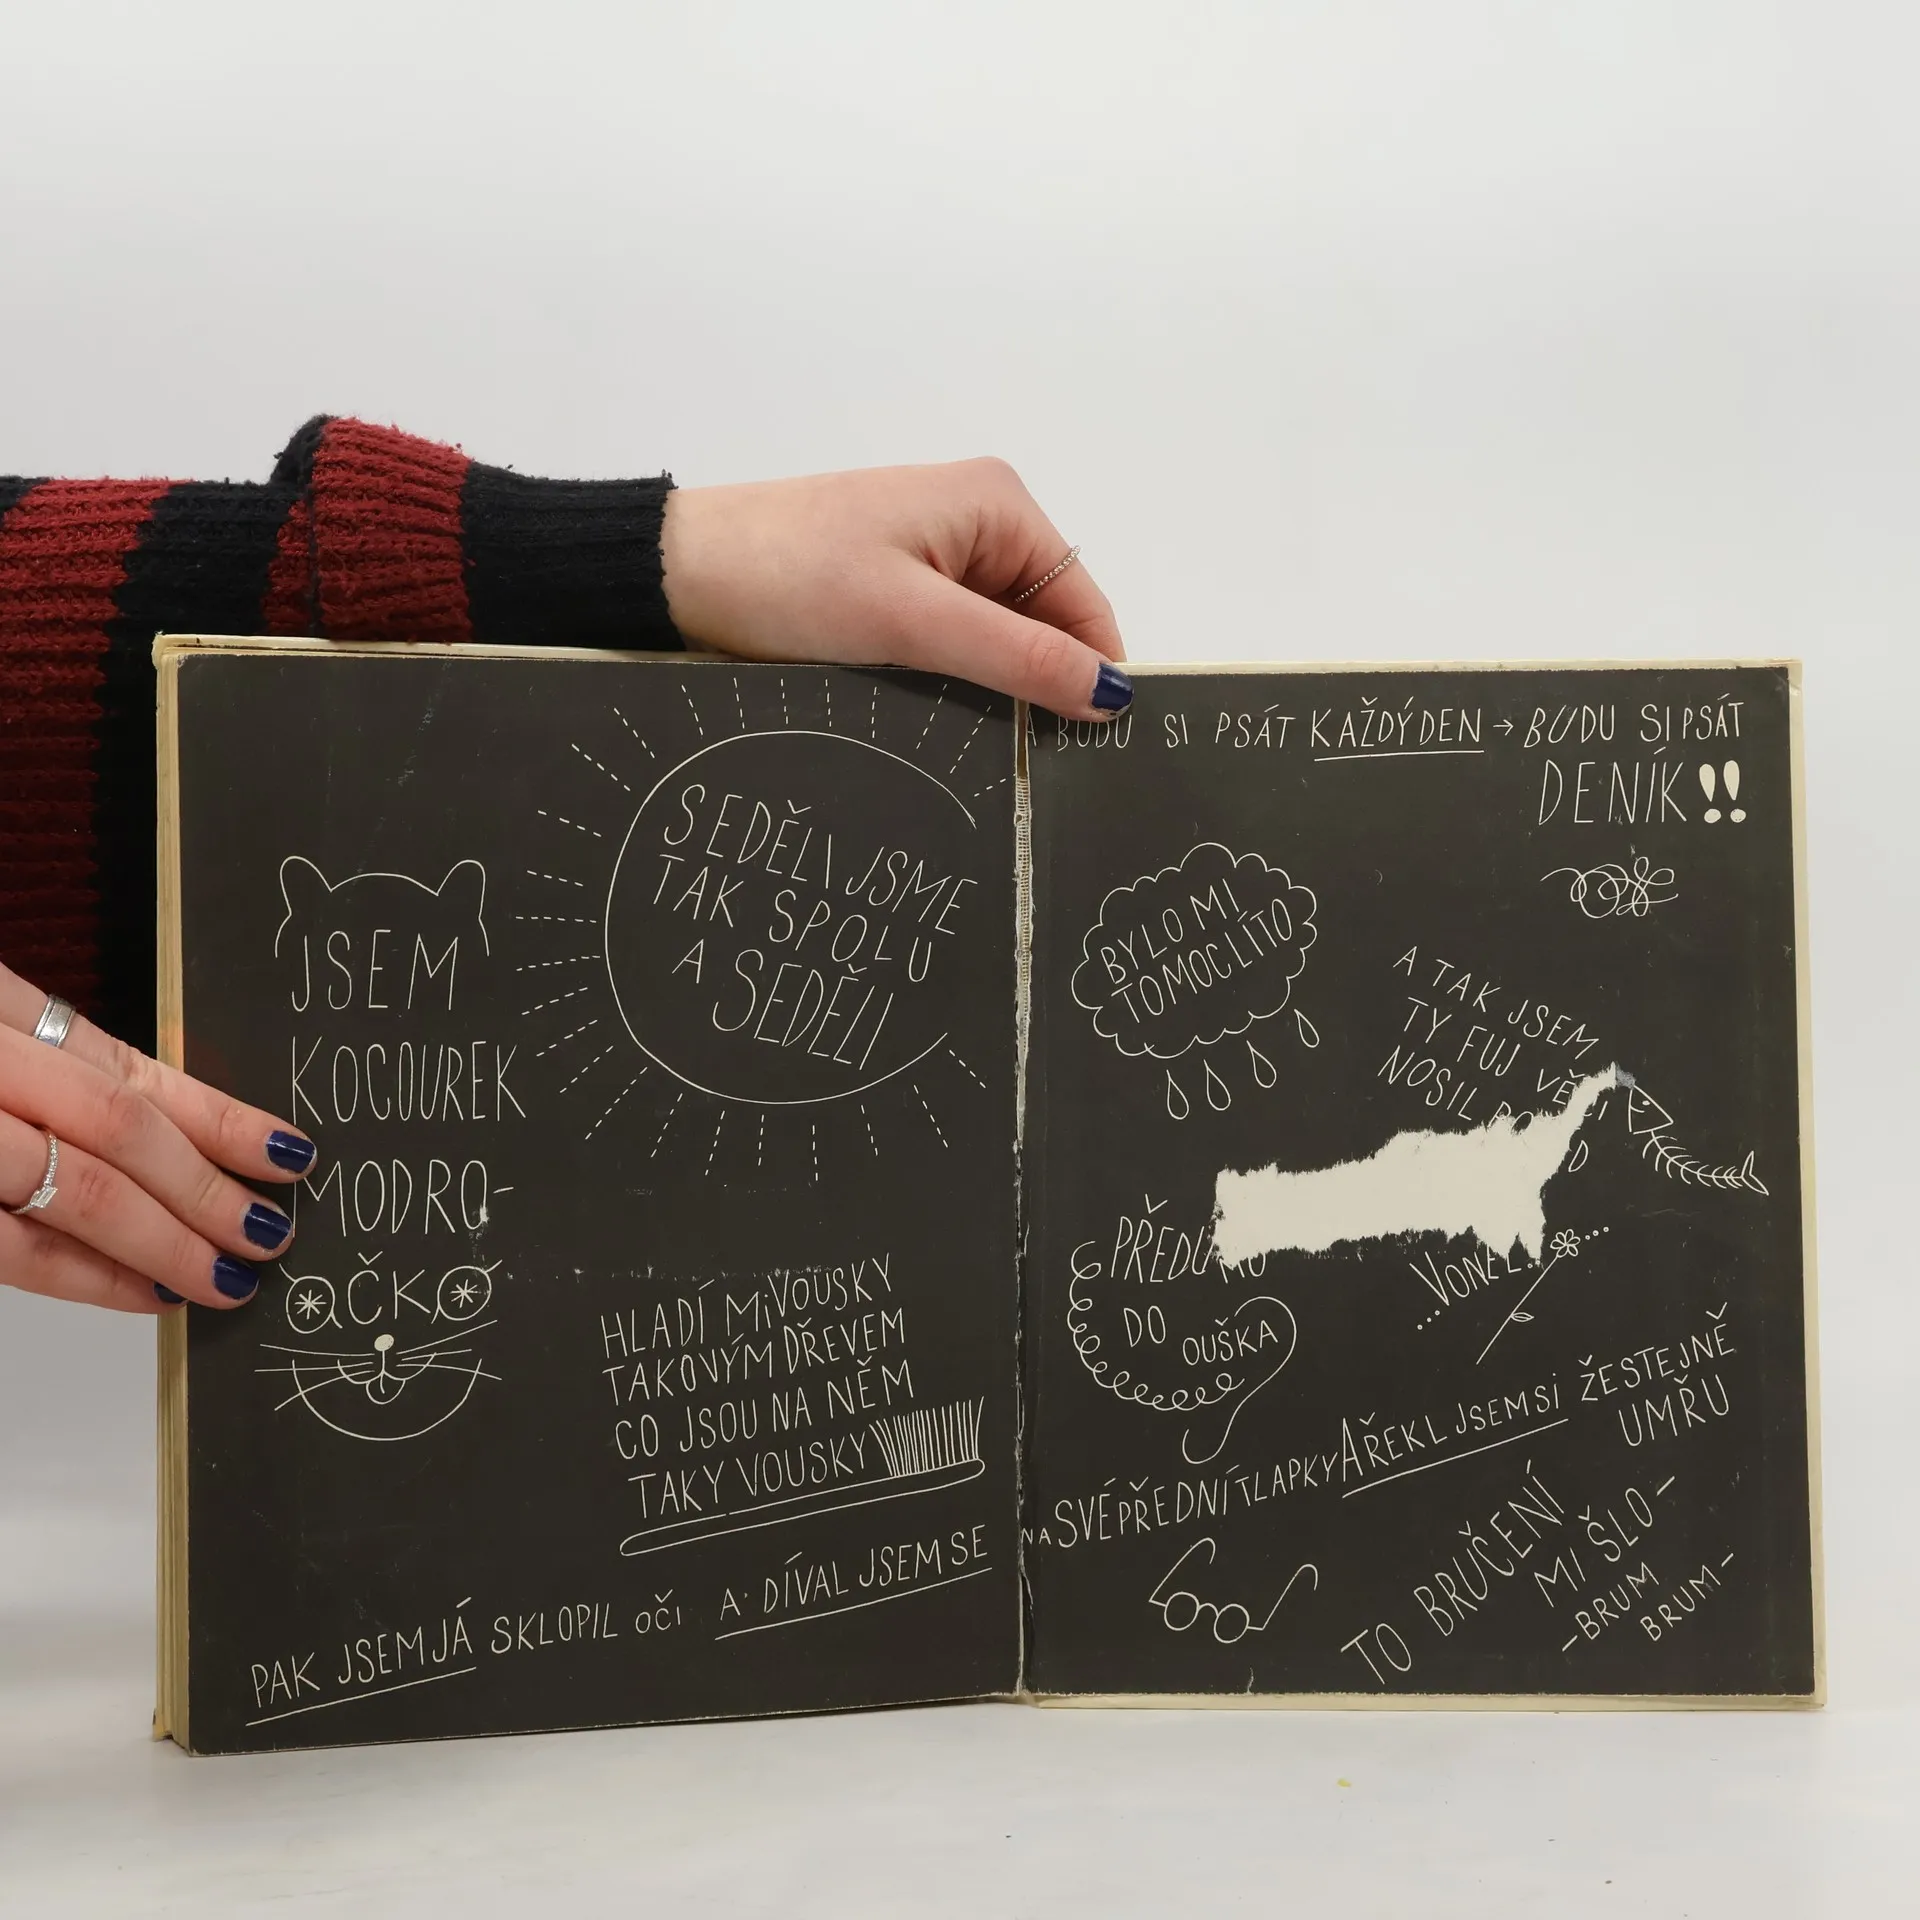 SEDĚLI JSME
TAK SPOLU
A SEDĚLI
JSEM
KOCOUREK
MODRO-
OČKO
HLADÍ MI VOUSKY
TAKOVÝM DŘEVEM
CO JSOU NA NĚM
TAKY VOUSKY
PAK JSEM JÁ SKLOPIL OČI A DÍVAL JSEM SE
A BUDU SI PSÁT KAŽDÝ DEN → BUDU SI PSÁT
DENÍK !!
BYLO MI
TOMOC LÍTO
A TAK JSEM
TY FUJ VĚCI
NOSIL
PŘEDU MU
DO
OUŠKA
...VONĚL...
NA SVÉ PŘEDNÍ TLAPKY A ŘEKL JSEM SI ŽE STEJNĚ
UMŘU
TO BRUČENÍ
MI ŠLO-
-BRUM
BRUM-